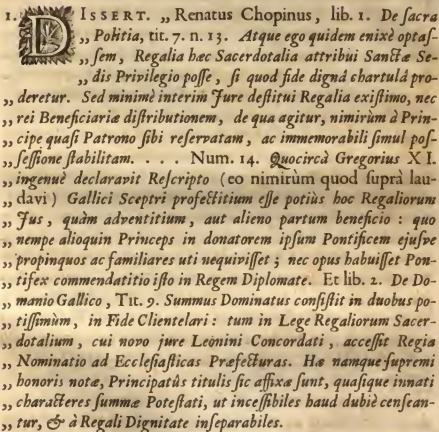 1. DISSERT. „ Renatus Chopinus, lib. 1. De sacra
„ Politia, tit. 7. n. 13. Atque ego quidem enixè optas-
„ sem, Regalia hæc Sacerdotalia attribui Sanctæ Se-
„ dis Privilegio posse, si quod fide dignâ chartulâ pro-
„ deretur. Sed minimè interim Jure destitui Regalia existimo, nec
„ rei Beneficiariæ distributionem, de qua agitur, nimirùm à Prin-
„ cipe quasi Patrono sibi reservatam, ac immemorabili simul pos-
„ sessione stabilitam. . . . Num. 14. Quocircà Gregorius XI.
„ ingenuè declaravit Rescripto (eo nimirùm quod suprà lau-
„ davi) Gallici Sceptri profectitium esse potiùs hoc Regaliorum
„ Jus, quàm adventitium, aut alieno partum beneficio: quo
„ nempe alioquin Princeps in donatorem ipsum Pontificem ejusve
„ propinquos ac familiares uti nequivisset; nec opus habuisset Pon-
„ tifex commendatitio isto in Regem Diplomate. Et lib. 2. De Do-
„ manio Gallico, Tit. 9. Summus Dominatus consistit in duobus po-
„ tissimùm, in Fide Clientelari: tum in Lege Regaliorum Sacer-
„ dotalium, cui novo jure Leonini Concordati, accessit Regia
„ Nominatio ad Ecclesiasticas Præfecturas. Hæ namque supremi
„ honoris notæ, Principatûs titulis sic affixæ sunt, quasique innati
„ characteres summæ Potestati, ut incessibiles haud dubiè censean-
„ tur, & à Regali Dignitate inseparabiles.